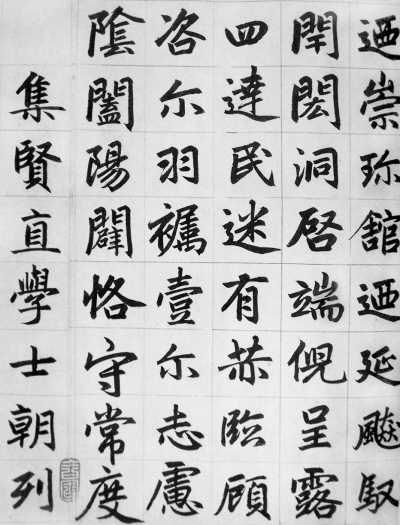 迺崇珎館迺延飈馭
閈閎洞啓端倪呈露
四達民迷有赫臨顧
咨尒羽襦壹尒志慮
陰闔陽闢恪守常度
集賢直學士朝列